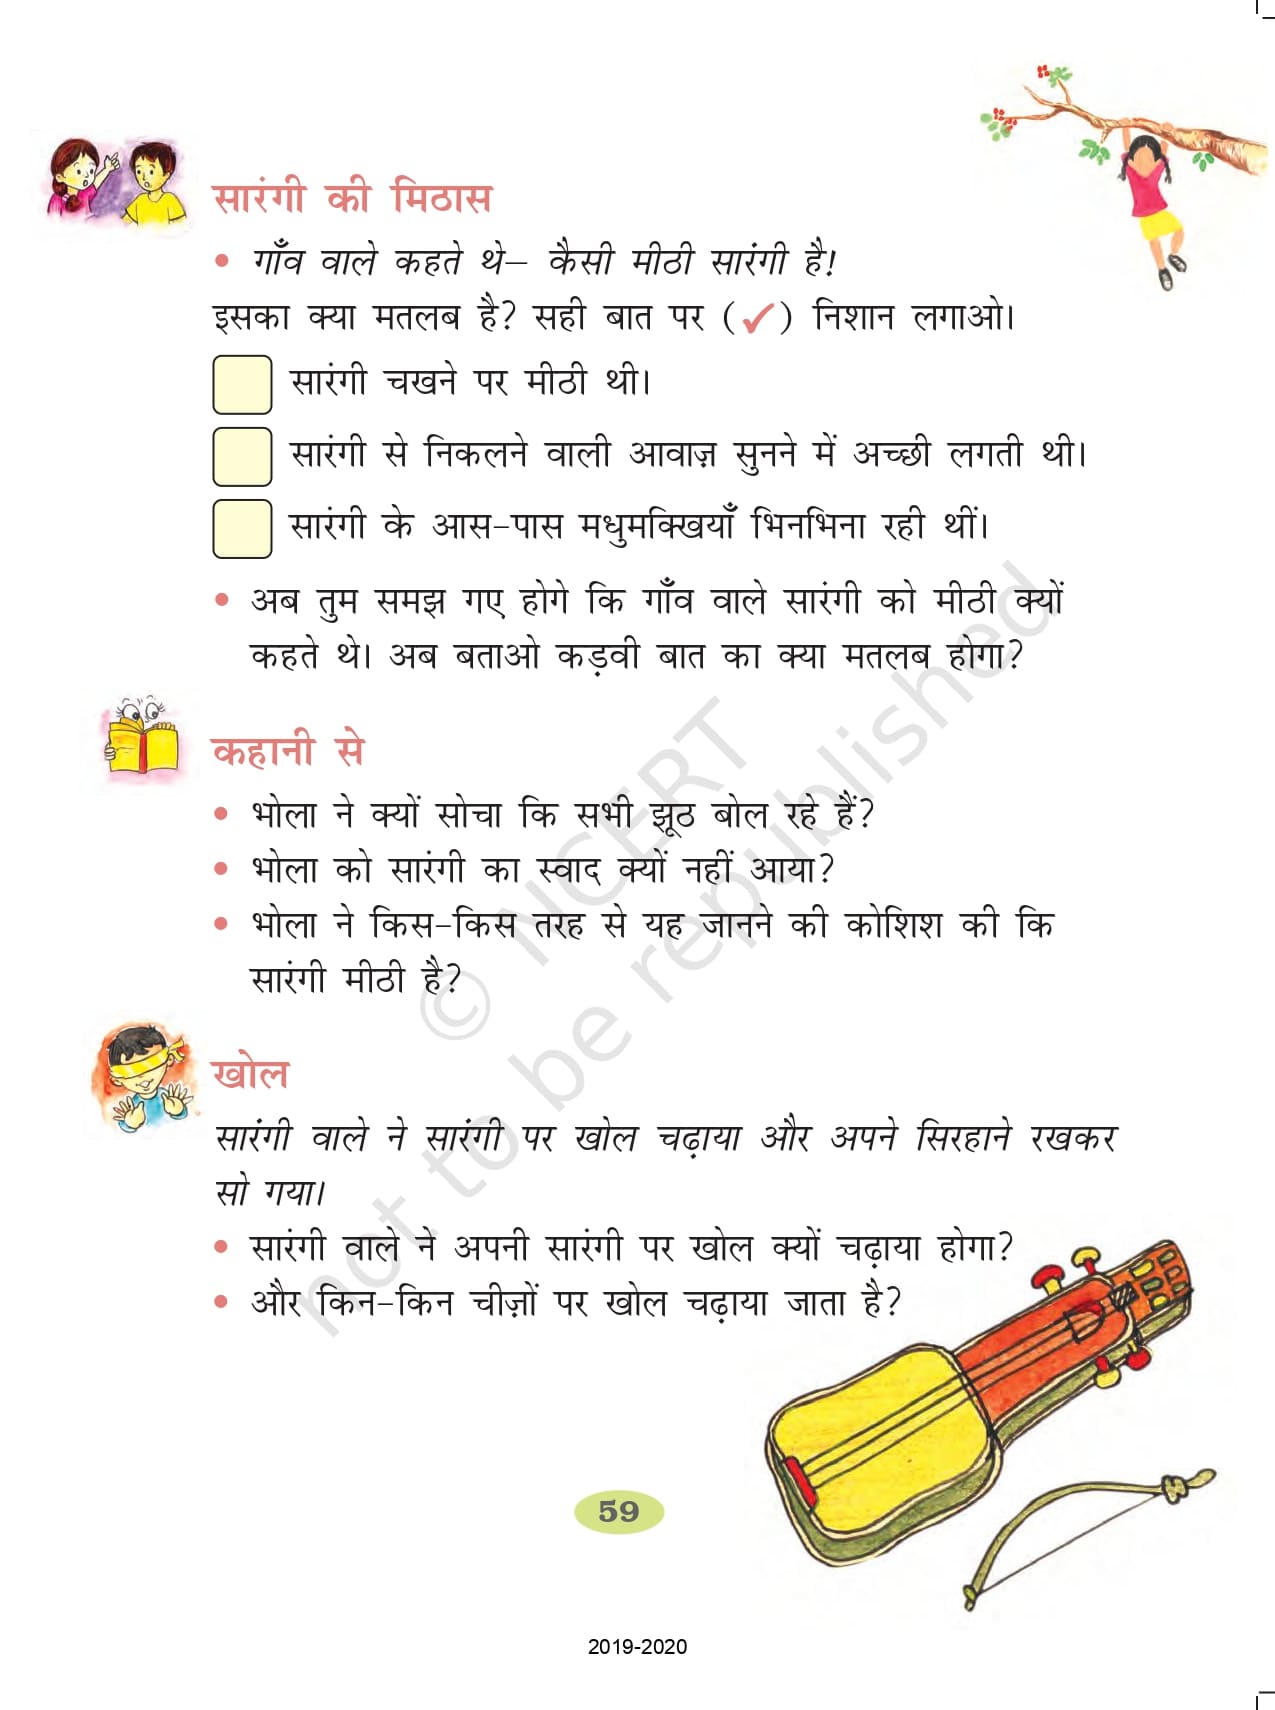 सारंगी की मिठास
• गाँव वाले कहते थे– कैसी मीठी सारंगी है!
इसका क्या मतलब है? सही बात पर (✓) निशान लगाओ।
सारंगी चखने पर मीठी थी।
सारंगी से निकलने वाली आवाज़ सुनने में अच्छी लगती थी।
सारंगी के आस-पास मधुमक्खियाँ भिनभिना रही थीं।
• अब तुम समझ गए होगे कि गाँव वाले सारंगी को मीठी क्यों
कहते थे। अब बताओ कड़वी बात का क्या मतलब होगा?
कहानी से
• भोला ने क्यों सोचा कि सभी झूठ बोल रहे हैं?
• भोला को सारंगी का स्वाद क्यों नहीं आया?
• भोला ने किस-किस तरह से यह जानने की कोशिश की कि
सारंगी मीठी है?
खोल
सारंगी वाले ने सारंगी पर खोल चढ़ाया और अपने सिरहाने रखकर
सो गया।
• सारंगी वाले ने अपनी सारंगी पर खोल क्यों चढ़ाया होगा?
• और किन-किन चीज़ों पर खोल चढ़ाया जाता है?
59
2019-2020
© NCERT
not to be republished